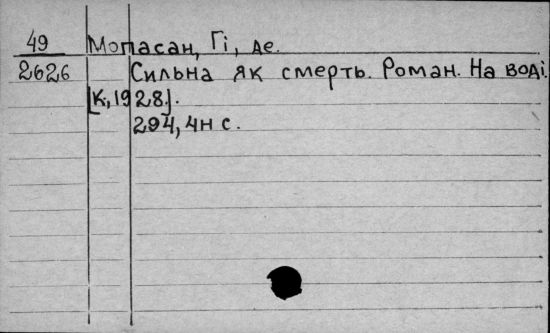 49 Мопасан, Гі, де.
2626 Сильна як смерть. Роман. На воді.
[К, 1928].
294, 4н с.